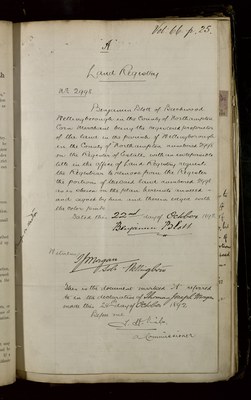 Vol. 66 p. 25.
A
Land Registry
No. 2998
Benjamin Blott of Backwood
Wellingborough in the County of Northampton
Corn Merchant being the registered proprietor
of the land in the parish of Wellingborough
in the County of Northampton numbered 2998
on the Register of Estates with an indefeasible
title in the office of Land Registry request
the Registrar to remove from the Register
the portion of the said land numbered 2998
as is shewn in the plan hereunto annexed
and signed by him and thereon edged with
the color pink.
Dated this 22nd day of October 189
Benjamin Blott
Witness
J Morgan
Wellingboro
This is the document marked "A" referred
to in the declaration of Thomas Joseph Morgan
made this day of October 189
Before me
A Commissioner